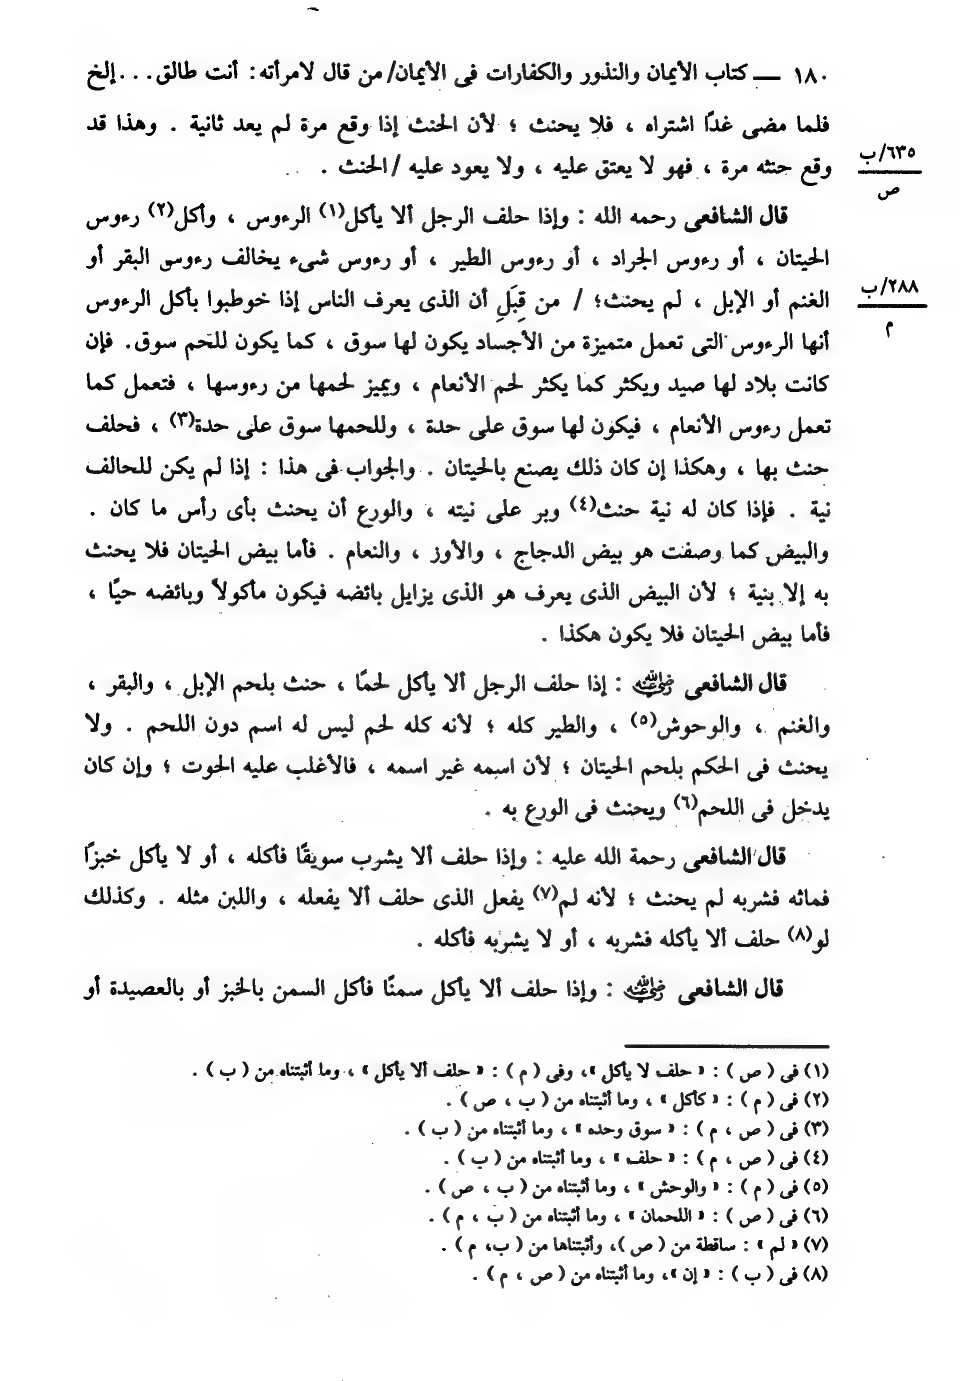 ١٨٠ ــــ كتاب الأيمان والنذور والكفارات فى الأيمان/ من قال لامرأته: أنت طالق... إلخ
فلما مضى غدًا اشتراه ، فلا يحنث ؛ لأن الحنث إذا وقع مرة لم يعد ثانية . وهذا قد
وقع حنثه مرة ، فهو لا يعتق عليه ، ولا يعود عليه / الحنث .
٦٣٥/ب
ص
قال الشافعى رحمه الله : وإذا حلف الرجل ألا يأكل(١) الرءوس ، وأكل(٢) رءوس
الحيتان ، أو رءوس الجراد ، أو رءوس الطير ، أو رءوس شىء يخالف رءوس البقر أو
الغنم أو الإبل ، لم يحنث؛ / من قِبَلِ أن الذى يعرف الناس إذا خوطبوا بأكل الرءوس
٢٨٨/ب
م
أنها الرءوس التى تعمل متميزة من الأجساد يكون لها سوق ، كما يكون للحم سوق. فإن
كانت بلاد لها صيد ويكثر كما يكثر لحم الأنعام ، ويميز لحمها من رءوسها ، فتعمل كما
تعمل رءوس الأنعام ، فيكون لها سوق على حدة ، وللحمها سوق على حدة(٣) ، فحلف
حنث بها ، وهكذا إن كان ذلك يصنع بالحيتان . والجواب فى هذا : إذا لم يكن للحالف
نية . فإذا كان له نية حنث(٤) وبر على نيته ، والورع أن يحنث بأى رأس ما كان .
والبيض كما وصفت هو بيض الدجاج ، والأوز ، والنعام . فأما بيض الحيتان فلا يحنث
به إلا بنية ؛ لأن البيض الذى يعرف هو الذى يزايل بائضه فيكون مأكولاً وبائضه حيًا ،
فأما بيض الحيتان فلا يكون هكذا .
قال الشافعى رضي الله عنه : إذا حلف الرجل ألا يأكل لحمًا ، حنث بلحم الإبل ، والبقر ،
والغنم ، والوحوش(٥) ، والطير كله ؛ لأنه كله لحم ليس له اسم دون اللحم . ولا
يحنث فى الحكم بلحم الحيتان ؛ لأن اسمه غير اسمه ، فالأغلب عليه الحوت ؛ وإن كان
يدخل فى اللحم(٦) ويحنث فى الورع به .
قال الشافعى رحمة الله عليه : وإذا حلف ألا يشرب سويقًا فأكله ، أو لا يأكل خبزًا
فماثه فشربه لم يحنث ؛ لأنه لم(٧) يفعل الذى حلف ألا يفعله ، واللبن مثله . وكذلك
لو(٨) حلف ألا يأكله فشربه ، أو لا يشربه فأكله .
قال الشافعى رضي الله عنه : وإذا حلف ألا يأكل سمنًا فأكل السمن بالخبز أو بالعصيدة أو
(١) فى ( ص ) : « حلف لا يأكل »، وفى ( م ) : « حلف ألا يأكل » ، وما أثبتناه من ( ب ) .
(٢) فى ( م ) : « كأكل » ، وما أثبتناه من ( ب ، ص ) .
(٣) فى ( ص ، م ) : « سوق وحده » ، وما أثبتناه من ( ب ) .
(٤) فى ( ص ، م ) : « حلف » ، وما أثبتناه من ( ب ) .
(٥) فى ( م ) : « والوحش » ، وما أثبتناه من ( ب ، ص ) .
(٦) فى ( ص ) : « اللحمان » ، وما أثبتناه من ( ب ، م ) .
(٧) « لم » : ساقطة من ( ص )، وأثبتناها من ( ب، م ) .
(٨) فى ( ب ) : « إن »، وما أثبتناه من ( ص ، م ) .